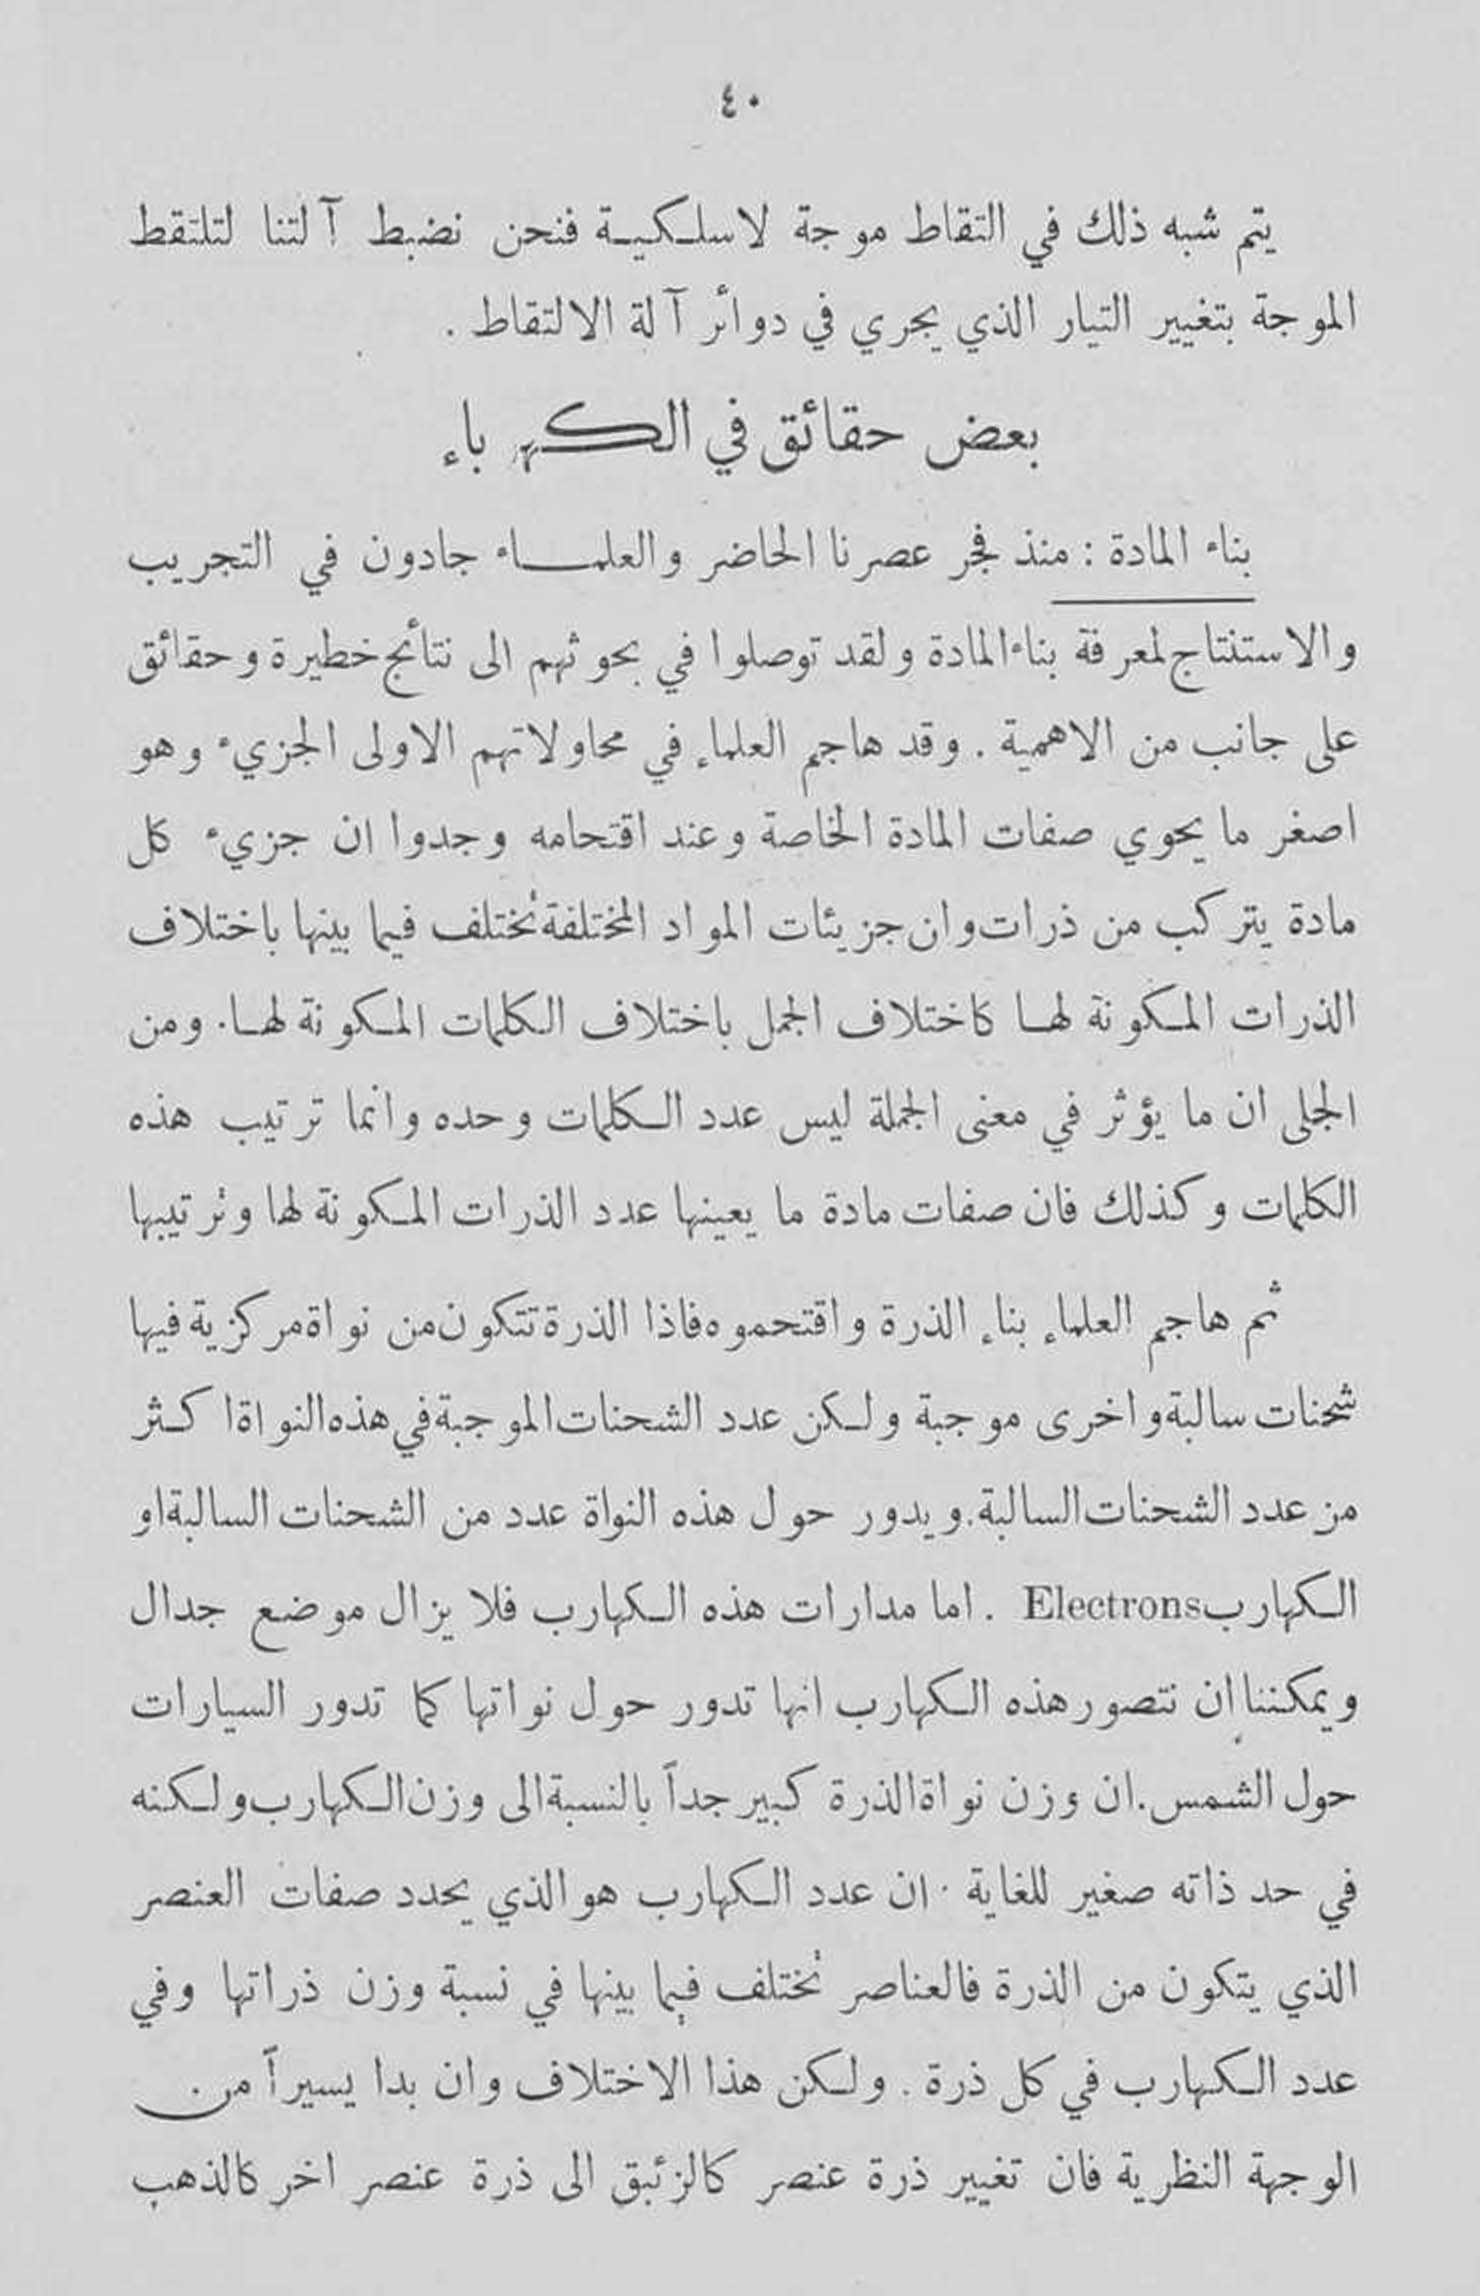 ٤٠
يتم شبه ذلك في التقاط موجة لاسلكية فنحن نضبط آلتنا لتلتقط
الموجة بتغيير التيار الذي يجري في دوائر آلة الالتقاط .
بعض حقائق في الكهرباء
بناء المادة : منذ فجر عصرنا الحاضر والعلماء جادون في التجريب
والاستنتاج لمعرفة بناء المادة ولقد توصلوا في بحوثهم الى نتائج خطيرة وحقائق
على جانب من الاهمية . وقد هاجم العلماء في محاولاتهم الاولى الجزيء وهو
اصغر ما يحوي صفات المادة الخاصة وعند اقتحامه وجدوا ان جزيء كل
مادة يتركب من ذرات وان جزيئات المواد المختلفة تختلف فيما بينها باختلاف
الذرات المكونة لها كاختلاف الجمل باختلاف الكلمات المكونة لها . ومن
الجلى ان ما يؤثر في معنى الجملة ليس عدد الكلمات وحده وانما ترتيب هذه
الكلمات وكذلك فان صفات مادة ما يعينها عدد الذرات المكونة لها وترتيبها
ثم هاجم العلماء بناء الذرة واقتحموه فاذا الذرة تتكون من نواة مركزية فيها
شحنات سالبة واخرى موجبة ولكن عدد الشحنات الموجبة في هذه النواة اكثر
من عدد الشحنات السالبة . ويدور حول هذه النواة عدد من الشحنات السالبة او
الكهارب Electrons . اما مدارات هذه الكهارب فلا يزال موضع جدال
ويمكننا ان نتصور هذه الكهارب انها تدور حول نواتها كما تدور السيارات
حول الشمس . ان وزن نواة الذرة كبير جداً بالنسبة الى وزن الكهارب ولكنه
في حد ذاته صغير للغاية . ان عدد الكهارب هو الذي يحدد صفات العنصر
الذي يتكون من الذرة فالعناصر تختلف فيما بينها في نسبة وزن ذراتها وفي
عدد الكهارب في كل ذرة . ولكن هذا الاختلاف وان بدا يسيراً من
الوجهة النظرية فان تغيير ذرة عنصر كالزئبق الى ذرة عنصر اخر كالذهب